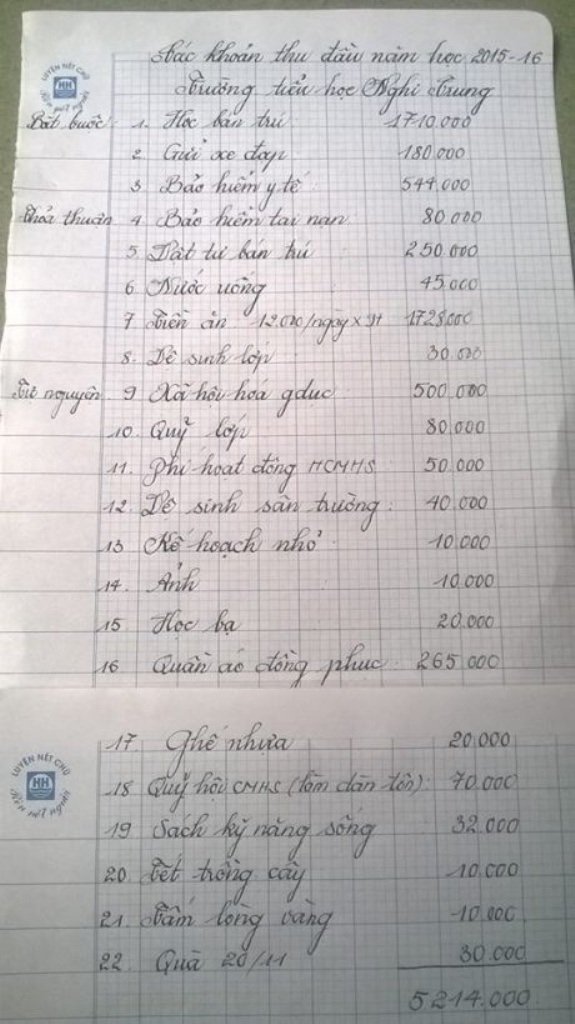 Các khoản thu đầu năm học 2015-16
Trường tiểu học Nghi Trung
LUYỆN NÉT CHỮ
HH
Rèn nết người
Bắt buộc: 1. Học bán trú: 1710.000
2. Gửi xe đạp 180.000
3 Bảo hiểm y tế 544.000
Thỏa thuận 4 Bảo hiểm tai nạn 80.000
5 Vật tư bán trú 250.000
6 Nước uống 45.000
7 Tiền ăn 12.000/ngày x 9t 1728.000
8. Vệ sinh lớp 30.000
Tự nguyện 9 Xã hội hoá gdục 500.000
10. Quỹ lớp 80.000
11. Phí hoạt động HCMHS 50.000
12. Vệ sinh sân trường: 40.000
13 Kế hoạch nhỏ 10.000
14. Ảnh 10.000
15 Học bạ 20.000
16 Quần áo đồng phục 265.000
17 Ghế nhựa 20.000
LUYỆN NÉT CHỮ
HH
Rèn nết người
18 Quỹ hội CMHS (làm dàn tôn): 70.000
19 Sách kỹ năng sống 32.000
20 Tết trồng cây 10.000
21. Tấm lòng vàng 10.000
22 Quà 20/11 30.000
5214.000